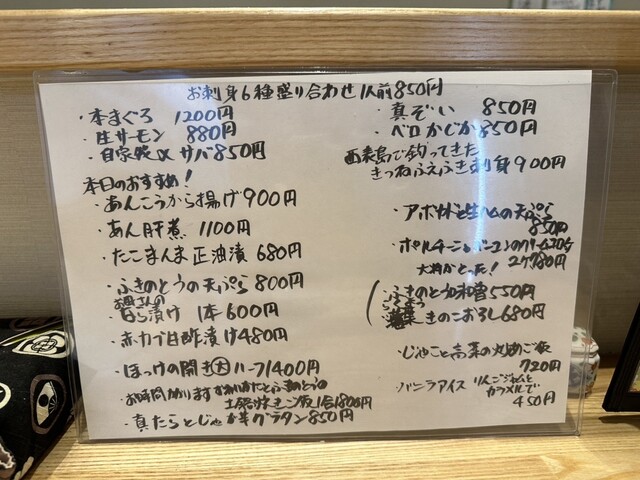 お刺身6種盛り合わせ1人前850円
・本まぐろ 1200円
・生サーモン 880円
・自家製〆サバ850円
本日のおすすめ!
・あんこうから揚げ900円
・あん肝煮 1100円
・たこまんま正油漬 680円
・ふきのとうの天ぷら800円
お母さんの
・白ら漬け 1本600円
・赤カブ甘酢漬け480円
・ほっけの開き大 ハーフ1400円
・お時間かかります
土鍋炊きご飯1合1800円
・真たらとじゃが芋グラタン850円
・真ぞい 850円
・ベロかじか850円
西表島で釣ってきた
きつねふえふき刺身900円
・アボカドと生ハムの天ぷら
850円
・ポルチーニとベーコンのクリームコロッケ
2ケ780円
大将がとった!
・ふきのとう味噌550円
・落葉きのこおろし680円
・じゃこと高菜の丸めご飯
720円
・バニラアイス りんごジャムと
カラメルで
450円